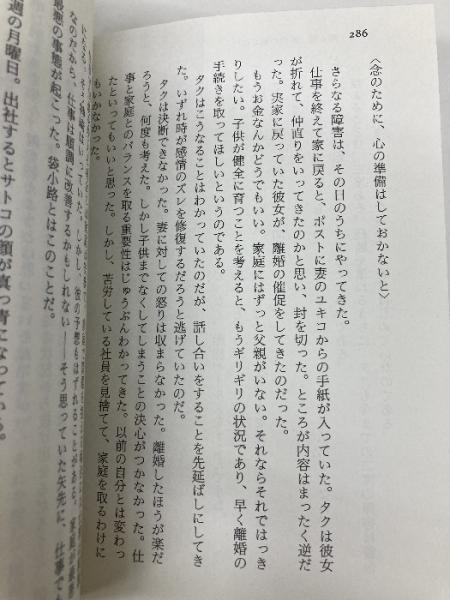 286
〈念のために、心の準備はしておかないと〉
さらなる障害は、その日のうちにやってきた。
仕事を終えて家に戻ると、ポストに妻のユキコからの手紙が入っていた。タクは彼女
が折れて、仲直りをいってきたのかと思い、封を切った。ところが内容はまったく逆だ
った。実家に戻っていた彼女が、離婚の催促をしてきたのだった。
もうお金なんかどうでもいい。家庭にはずっと父親がいない。それならそれではっき
りしたい。子供が健全に育つことを考えると、もうギリギリの状況であり、早く離婚の
手続きを取ってほしいというのである。
タクはこうなることはわかっていたのだが、話し合いをすることを先延ばしにしてき
た。いずれ時が感情のズレを修復するだろうと逃げていたのだ。
タクは決断できなかった。妻に対しての怒りは収まらなかった。離婚したほうが楽だ
ろうと、何度も考えた。しかし子供までなくしてしまうことの決心がつかなかった。仕
事と家庭とのバランスを取る重要性はじゅうぶんわかってきた。以前の自分とは変わっ
たといってもいいと思った。しかし、苦労している社員を見捨てて、家庭を取るわけに
もいかなかった。
しかし、彼の予想もはずれることがある。
なのだから、仕事は順調に改善するかもしれない――そう思っていた矢先に、仕事で
最悪の事態が起こった。袋小路とはこのことだ。
週の月曜日。出社するとサトコの顔が真っ青になっている。